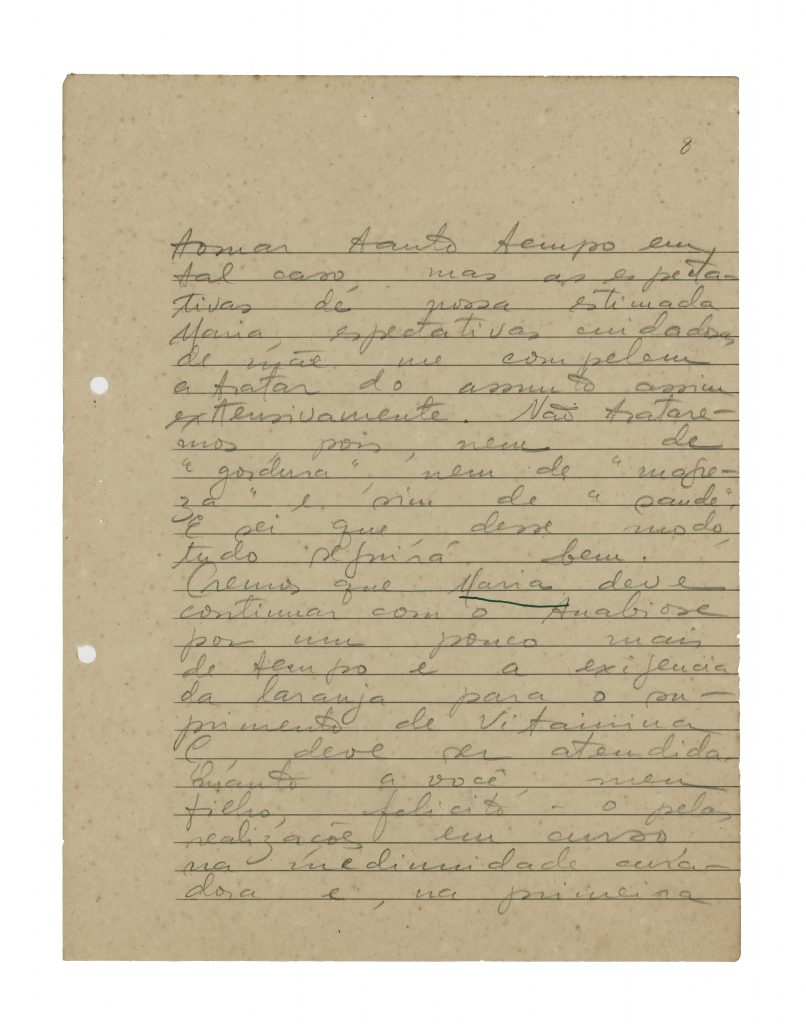 8
tomar tanto tempo em
tal caso, mas as especta-
tivas de nossa estimada
Maria, espectativas cuidadosas
de mãe me compelem
a tratar do assunto assim
extensivamente. Não tratare-
mos, pois, nem de
"gordura", nem de "magre-
za" e sim de "saude".
E sei que desse modo,
tudo seguirá bem.
Cremos que Maria deve
continuar com o Anabiose
por um pouco mais
de tempo e a exigencia
da laranja para o su-
primento de Vitamina
C, deve ser atendida.
Quanto a você, meu
filho, felicito-o pelas
realizações em curso
na mediunidade cura-
dora e, na primeira